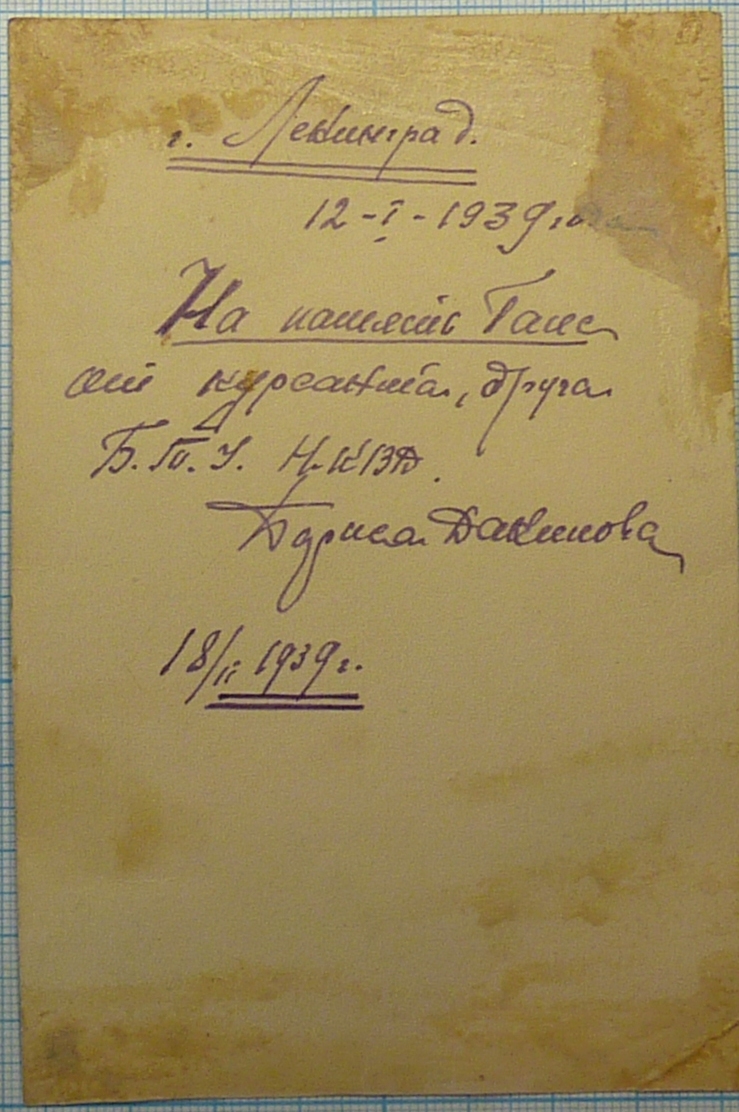 г. Ленинград.
12-I-1939 года
На память Гале
от курсанта, друга
В.П.У. НКВД.
Бориса Данилова
18/II 1939 г.